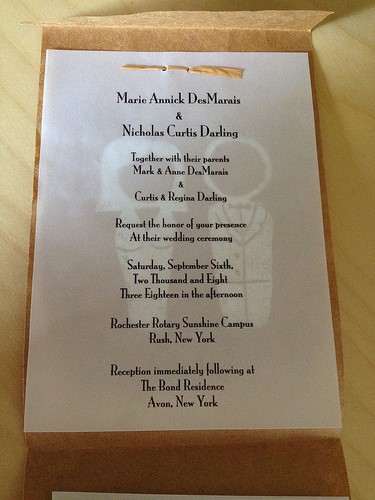 Marie Annick DesMarais
&
Nicholas Curtis Darling
Together with their parents
Mark & Anne DesMarais
&
Curtis & Regina Darling
Request the honor of your presence
At their wedding ceremony
Saturday, September Sixth,
Two Thousand and Eight
Three Eighteen in the afternoon
Rochester Rotary Sunshine Campus
Rush, New York
Reception immediately following at
The Bond Residence
Avon, New York